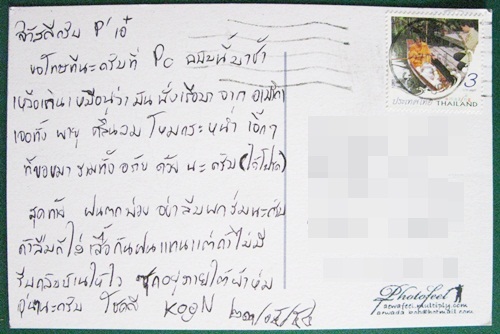 สวัสดีครับ P'เอ๋
ขอโทษทีนะครับที่ Pc ฉบับนี้มาช้า
เหลือเกินเหมือนว่ามันนั่งเรือมาจาก อเมริกา
เจอทั้ง พายุ คลื่นลม โหมกระหน่ำ
นะครับ
สุดท้าย ฝนตกบ่อย อย่าลืมพกร่มนะครับ
ถ้าลืมก็ใส่เสื้อกันฝนแทนแต่ถ้าไม่มี
รีบกลับบ้านให้ไว ซุกอยู่ภายใต้ผ้าห่ม
อุ่นนะครับ โชคดี
3
ประเทศไทย THAILAND
Photofeel